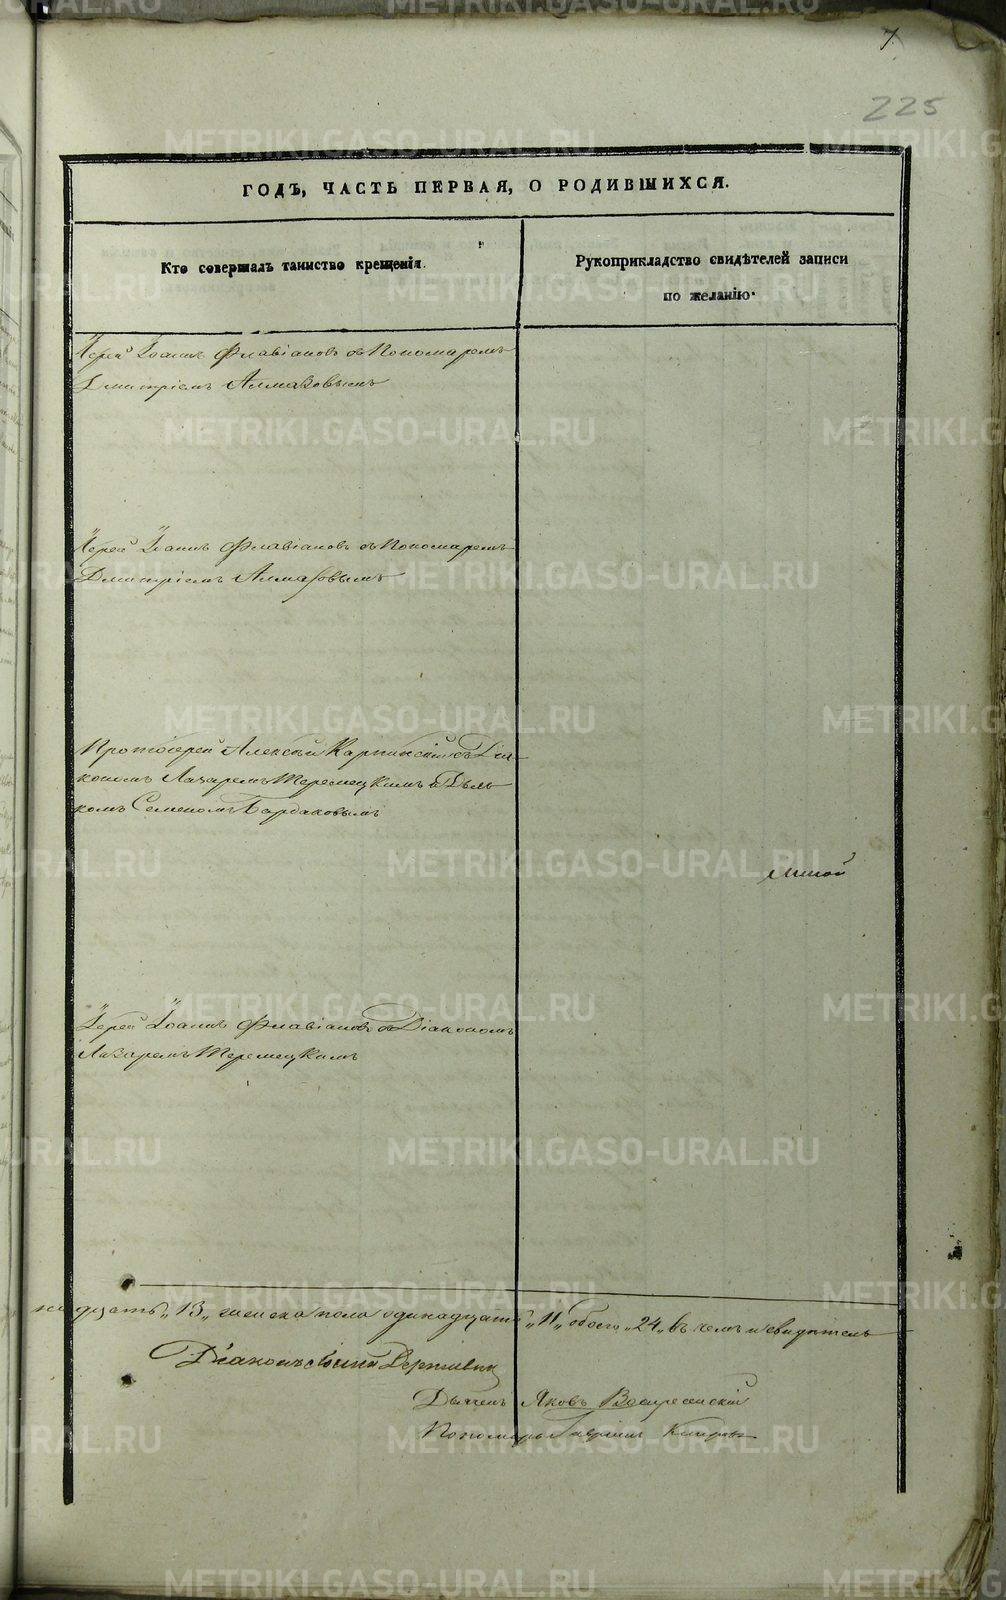 7
225
ГОДЪ, ЧАСТЬ ПЕРВАЯ, О РОДИВШИХСЯ.
Кто совершалъ таинство крещенія.
Рукоприкладство свидѣтелей записи
по желанію.
Іерей Іоаннъ Флавіановъ съ Пономаремъ
Дмитріемъ Алмазовымъ
Іерей Іоаннъ Флавіановъ съ Пономаремъ
Дмитріемъ Алмазовымъ
Протоіерей Алексѣй Карпинскій съ Діа-
кономъ Лазаремъ Теремецкимъ и Дьяч-
комъ Семеномъ Бардаковымъ
Іерей Іоаннъ Флавіановъ съ Діакономъ
Лазаремъ Теремецкимъ
надцать „13„ женска пола одинадцать „11„ обоего „24„ въ чемъ и свидѣтель
Діаконъ
Дьячекъ Яковъ Воскресенскій
Пономарь Гавріилъ
METRIKI.GASO-URAL.RU